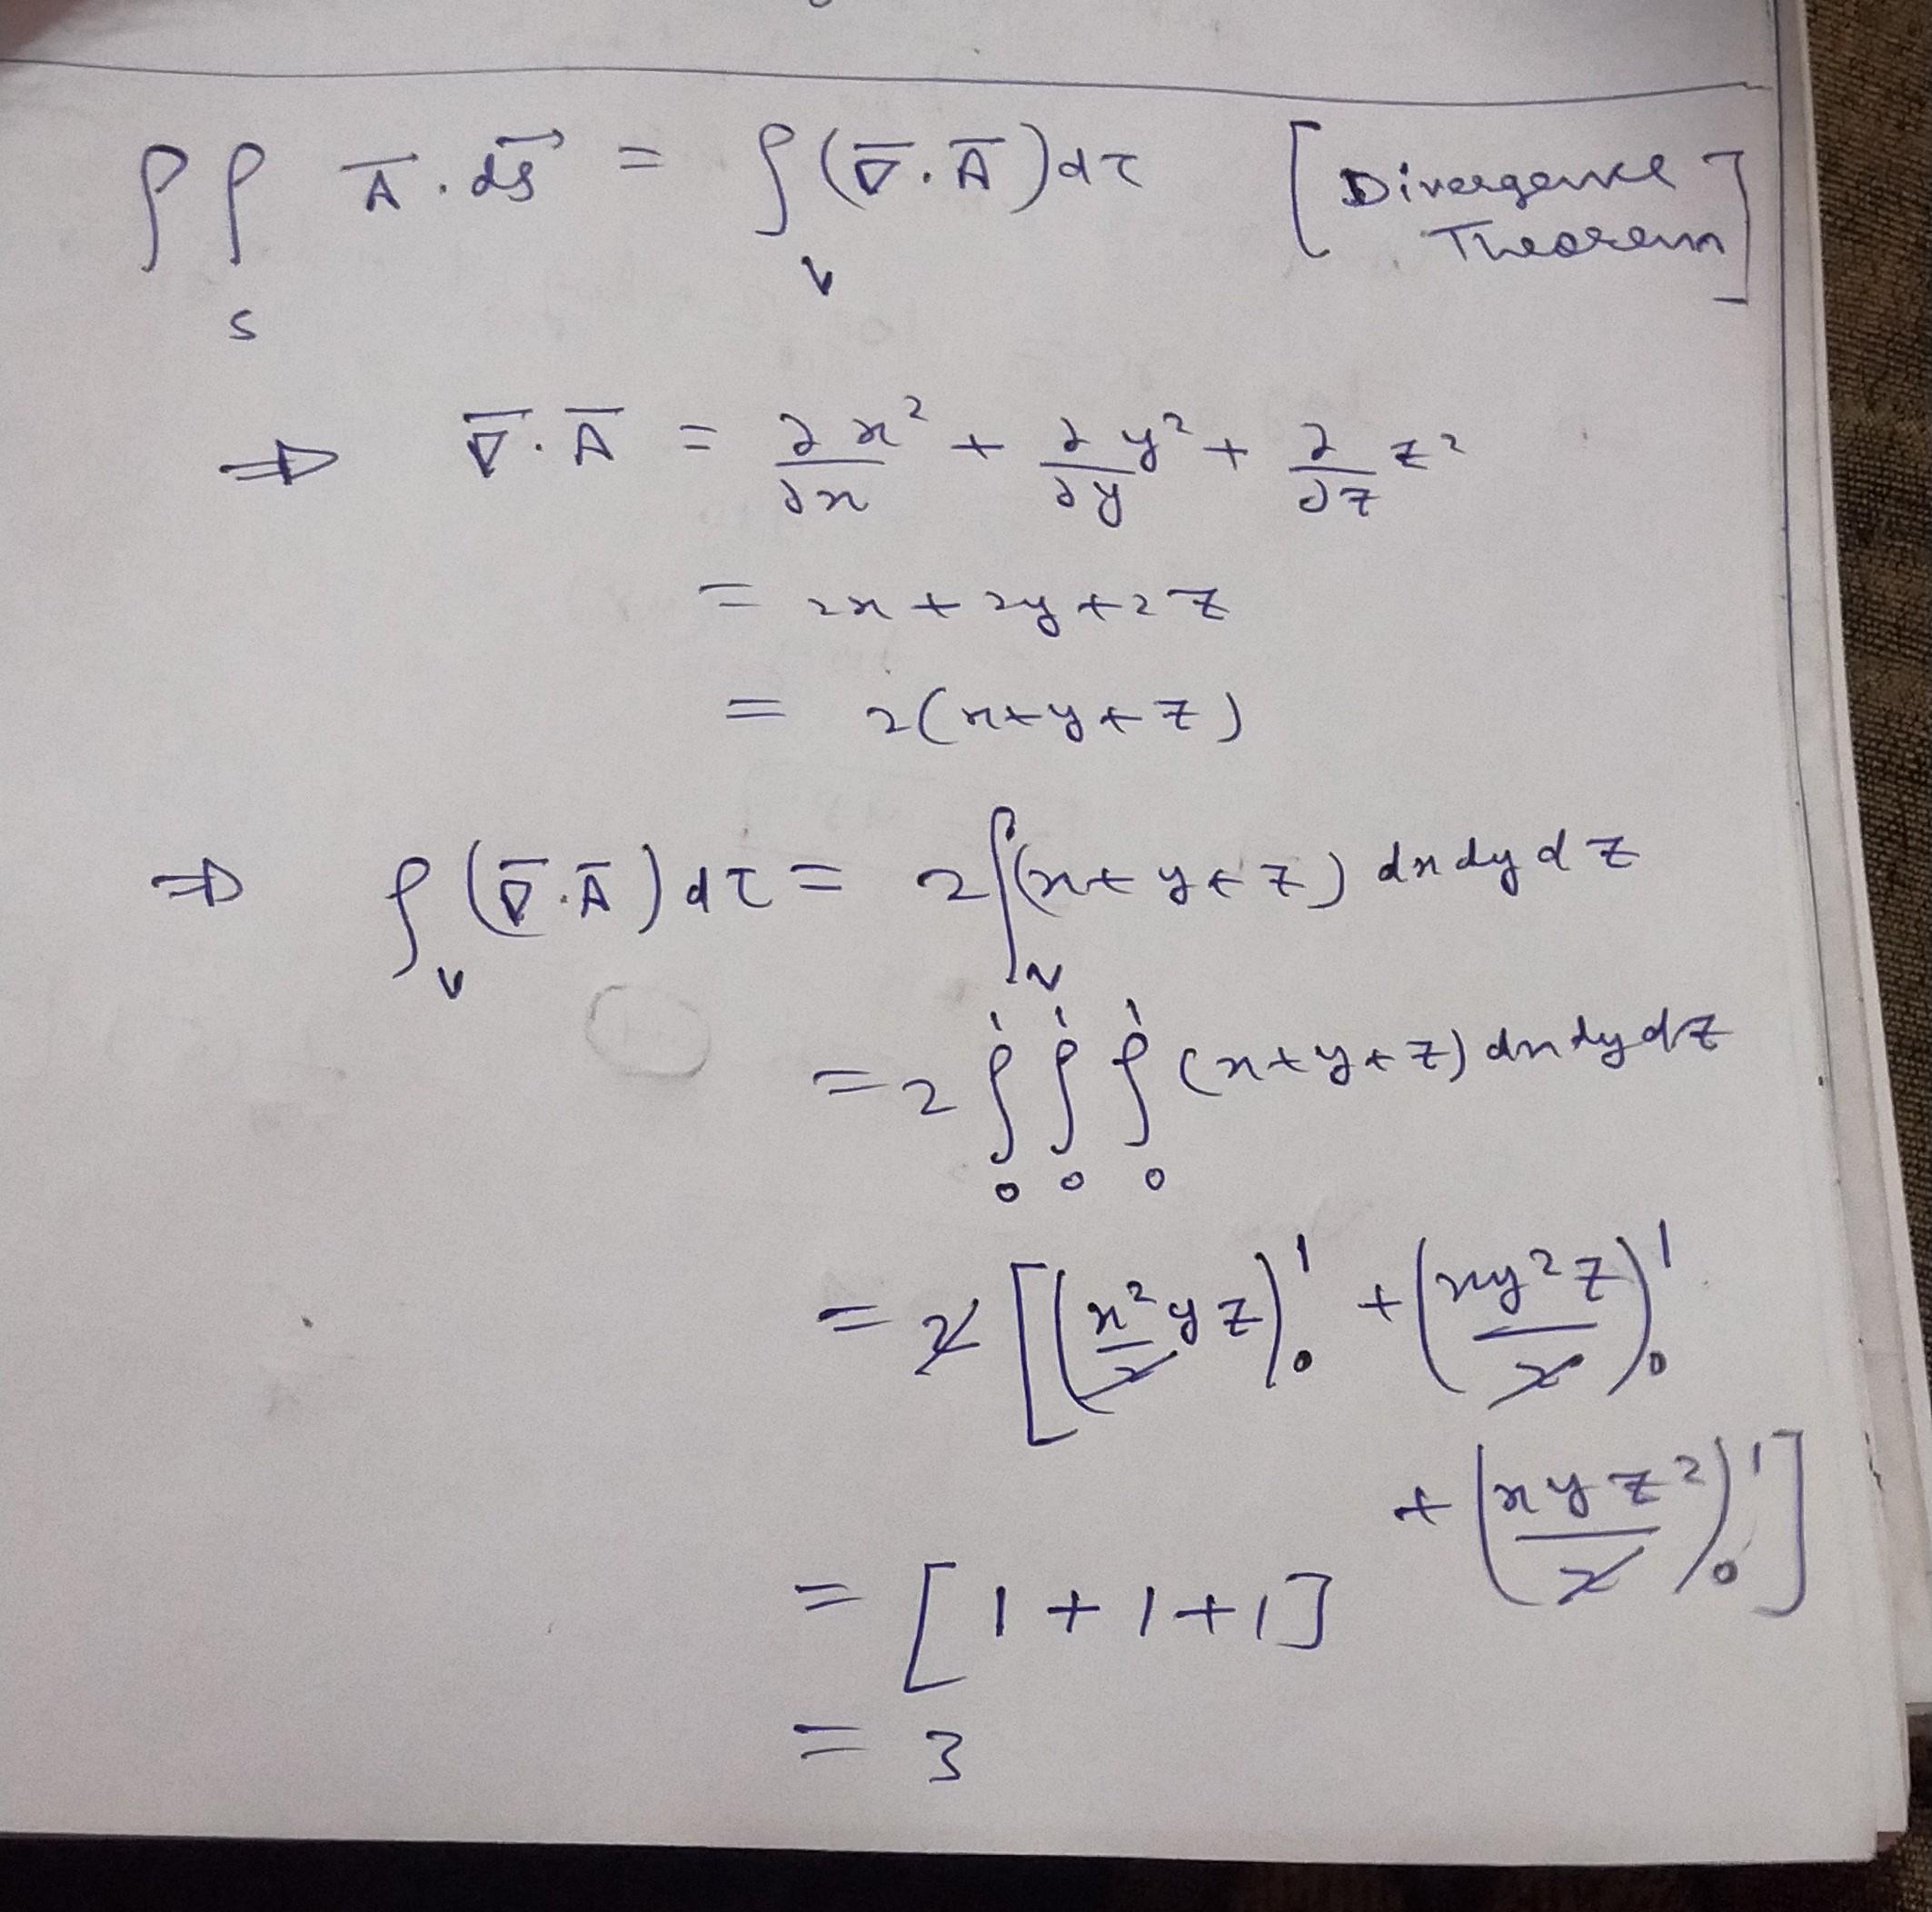 ∫∫_S A̅ · ds⃗ = ∫_V (∇̅ · A̅) dτ [Divergence Theorem]
⇒ ∇̅ · A̅ = ∂/∂x x² + ∂/∂y y² + ∂/∂z z²
= 2x + 2y + 2z
= 2(x+y+z)
⇒ ∫_V (∇̅ · A̅) dτ = 2∫_V (x+y+z) dx dy dz
= 2 ∫₀¹ ∫₀¹ ∫₀¹ (x+y+z) dx dy dz
= 2 [ (x²/2 yz)₀¹ + (xy²z/2)₀¹
+ (xyz²/2)₀¹ ]
= [1 + 1 + 1]
= 3